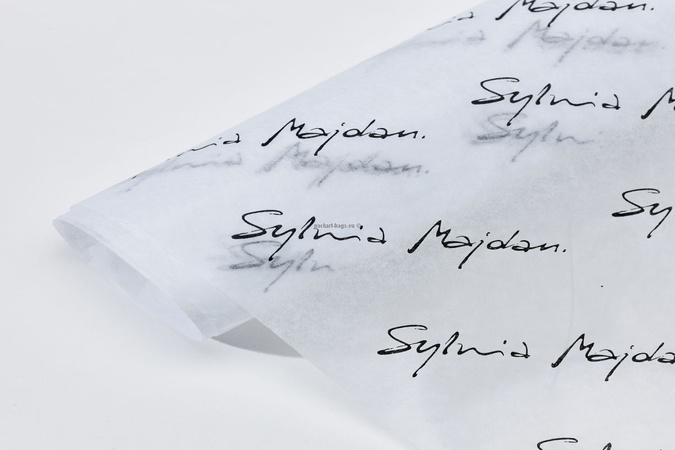 Majdan.
Sylwia M
Majdan.
Sy
Sylwia Majdan.
Syl
Sylwia Majda